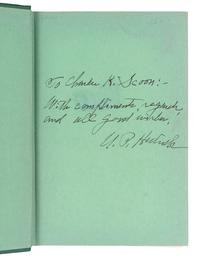 To Charles K. Scoon:-
With compliments, regards,
and all good wishes,
U. P. Hedrick